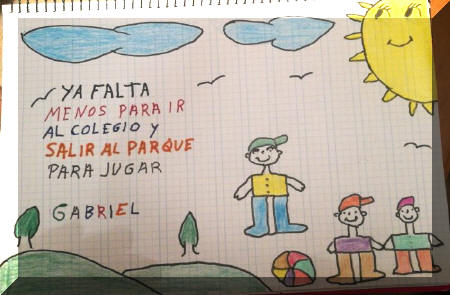 YA FALTA
MENOS PARA IR
AL COLEGIO Y
SALIR AL PARQUE
PARA JUGAR
GABRIEL